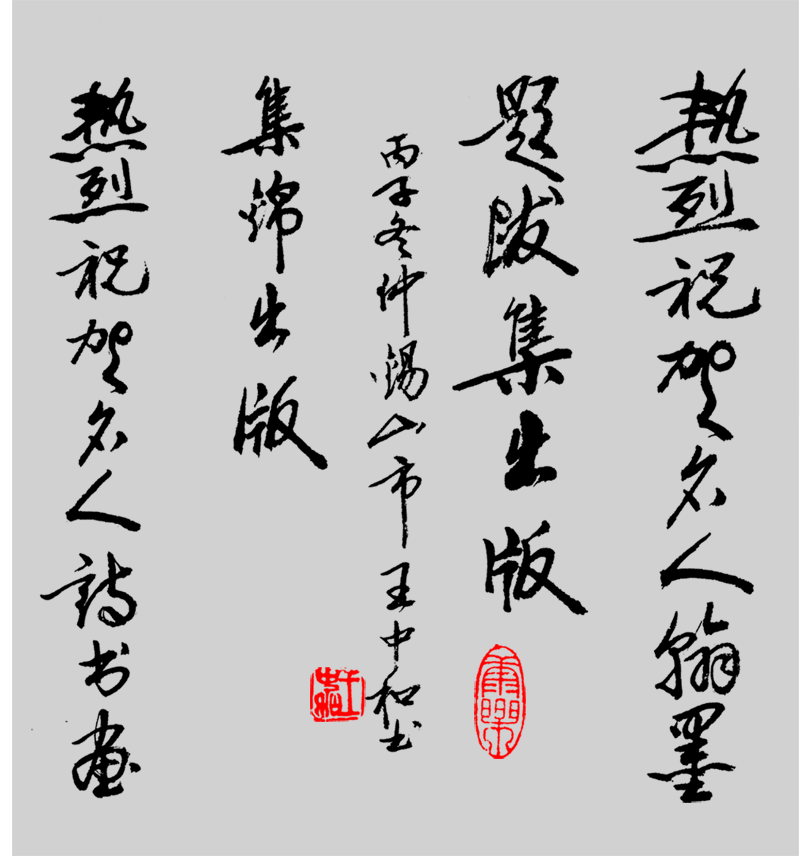 熱烈祝贺名人翰墨
题跋集出版
丙子冬仲锡山市王中和书
熱烈祝贺名人詩书画
集锦出版